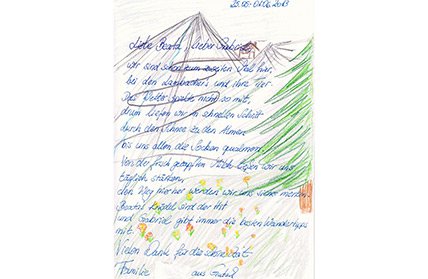 25.05.-01.06.2013
Liebe Beatl, lieber Gabriel
wir sind schon zum zweiten Mal hier,
bei den Lambacher's und ihre Tier.
Das Wetter spielte nicht so mit,
drum liefen wir im schnellen Schritt
durch den Schnee zu den Almen
bis uns allen die Socken qualmen.
Von der frisch gezapften Milch ließen wir uns
täglich stärken,
den Weg hierher werden wir uns sicher merken.
Beatls Knödel sind der Hit
und Gabriel gibt immer die besten Wandertipps
mit.
Vielen Dank für die schöne Zeit
Familie aus